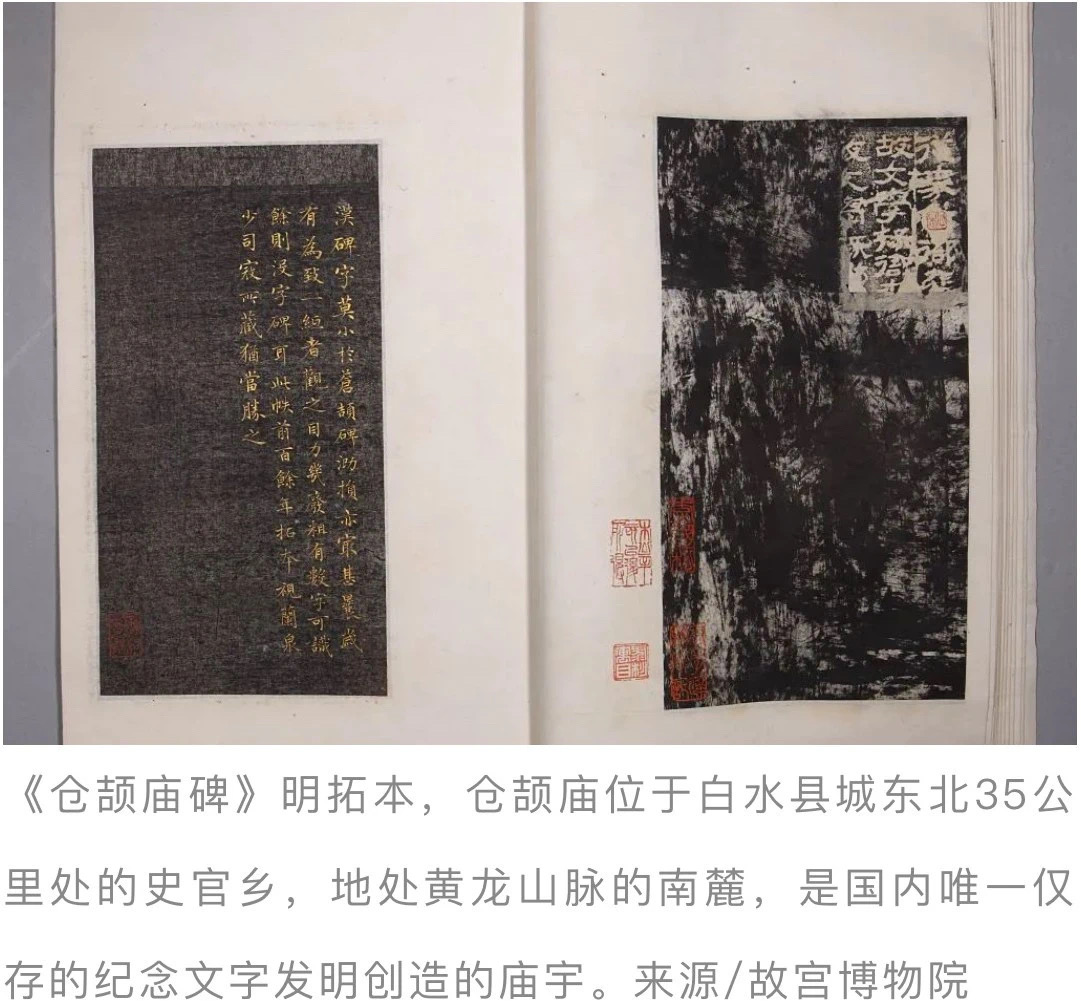 故文學掾
漢碑字莫小於蒼頡碑泐損亦寂甚曩歲
有為致一絙者觀之目力幾廢粗有數字可識
餘則沒字碑耳此帙前百餘年拓本視蘭泉
少司寇所藏猶當勝之
《仓颉庙碑》明拓本，仓颉庙位于白水县城东北35公
里处的史官乡，地处黄龙山脉的南麓，是国内唯一仅
存的纪念文字发明创造的庙宇。来源/故宫博物院